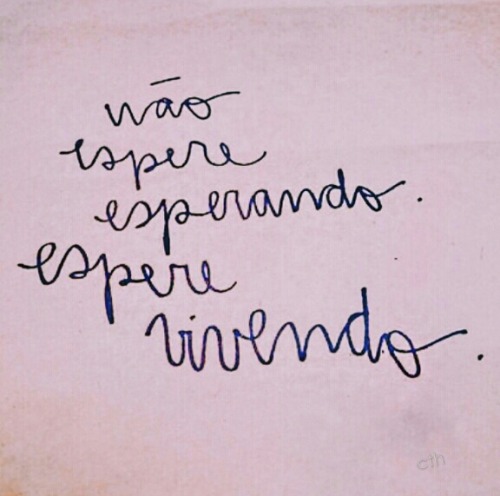 não
espere
esperando.
espere
vivendo.
cth